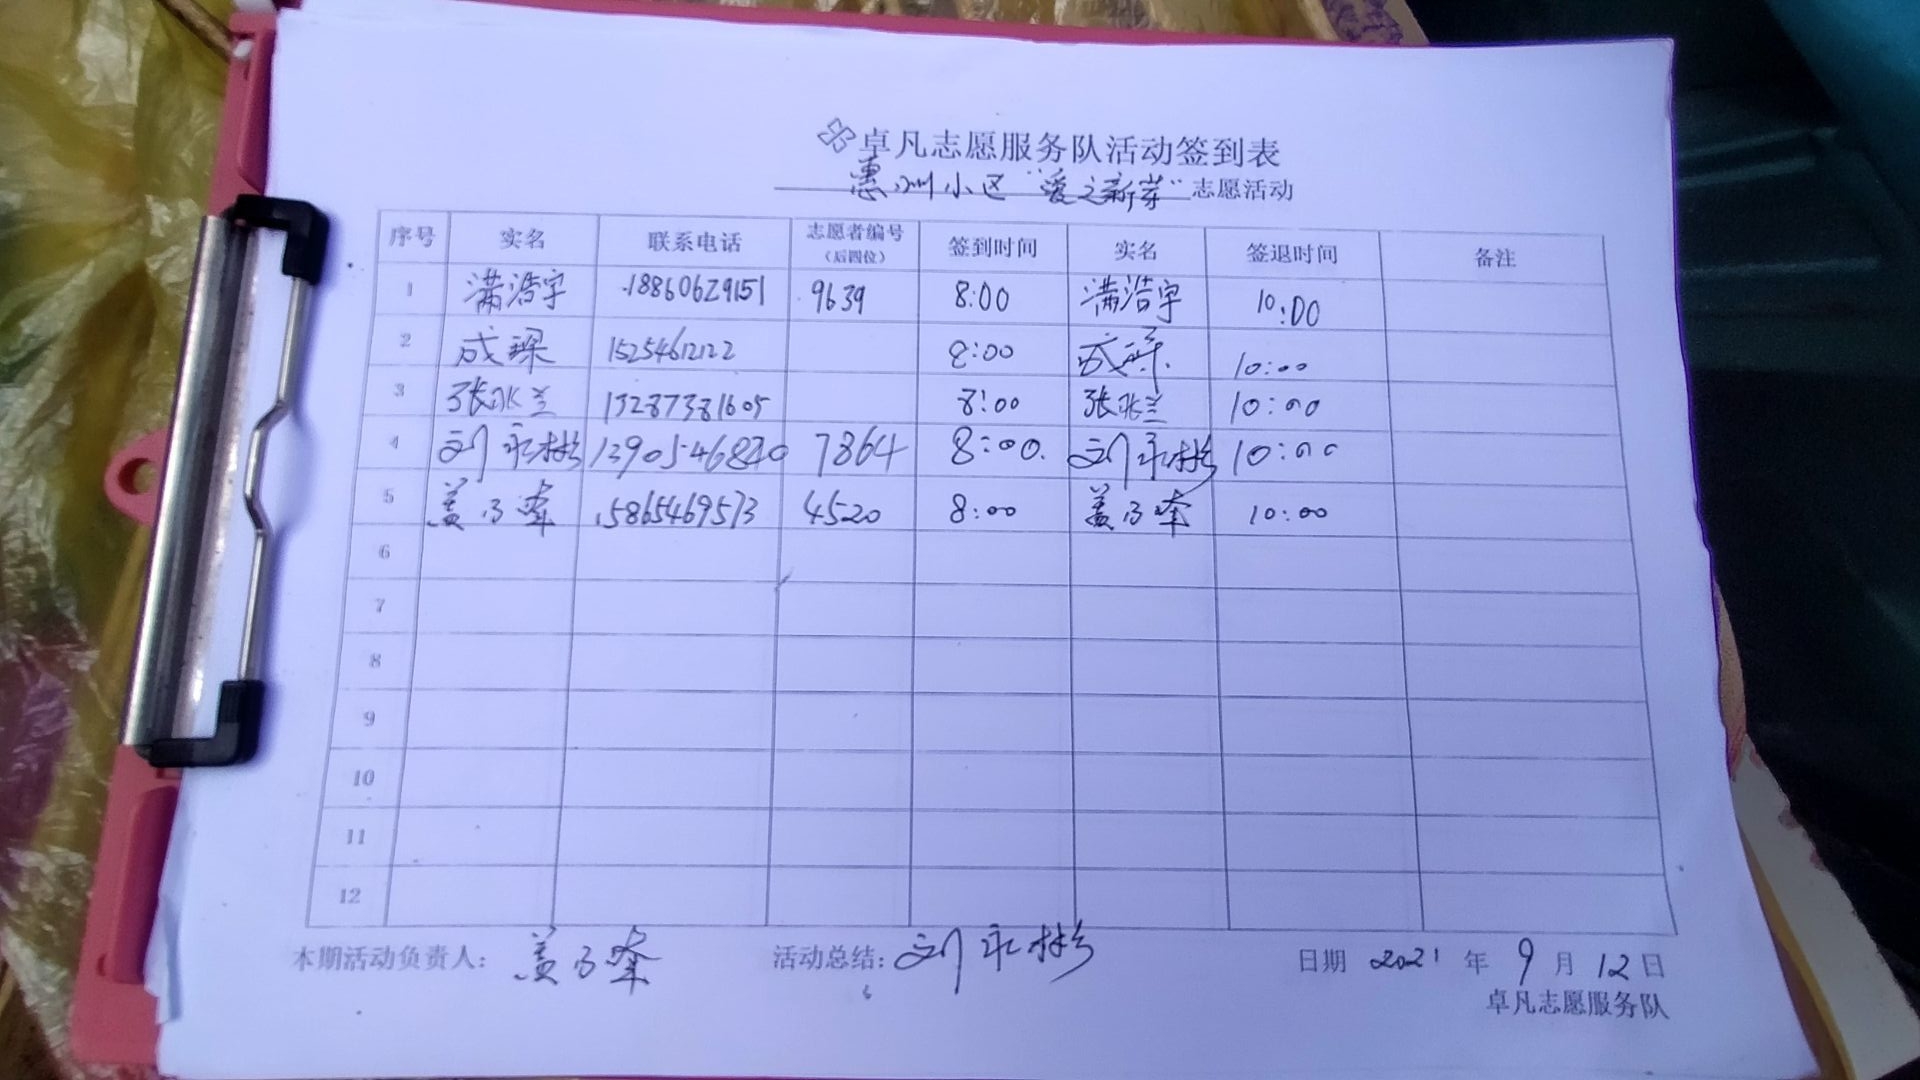 卓凡志愿服务队活动签到表
惠州小区“爱之新芽”志愿活动
序号 实名 联系电话 志愿者编号（后四位） 签到时间 实名 签退时间 备注
1 满浩宇 18860629151 9639 8:00 满浩宇 10:00
2 成 15254612122 8:00 成 10:00
3 张兰 13287381605 8:00 张兰 10:00
4 刘永彬 13905468 7864 8:00 刘永彬 10:00
5 盖 15865469573 4520 8:00 盖 10:00
6
7
8
9
10
11
12
本期活动负责人： 盖 活动总结：刘永彬 日期 2021 年 9 月 12 日
卓凡志愿服务队